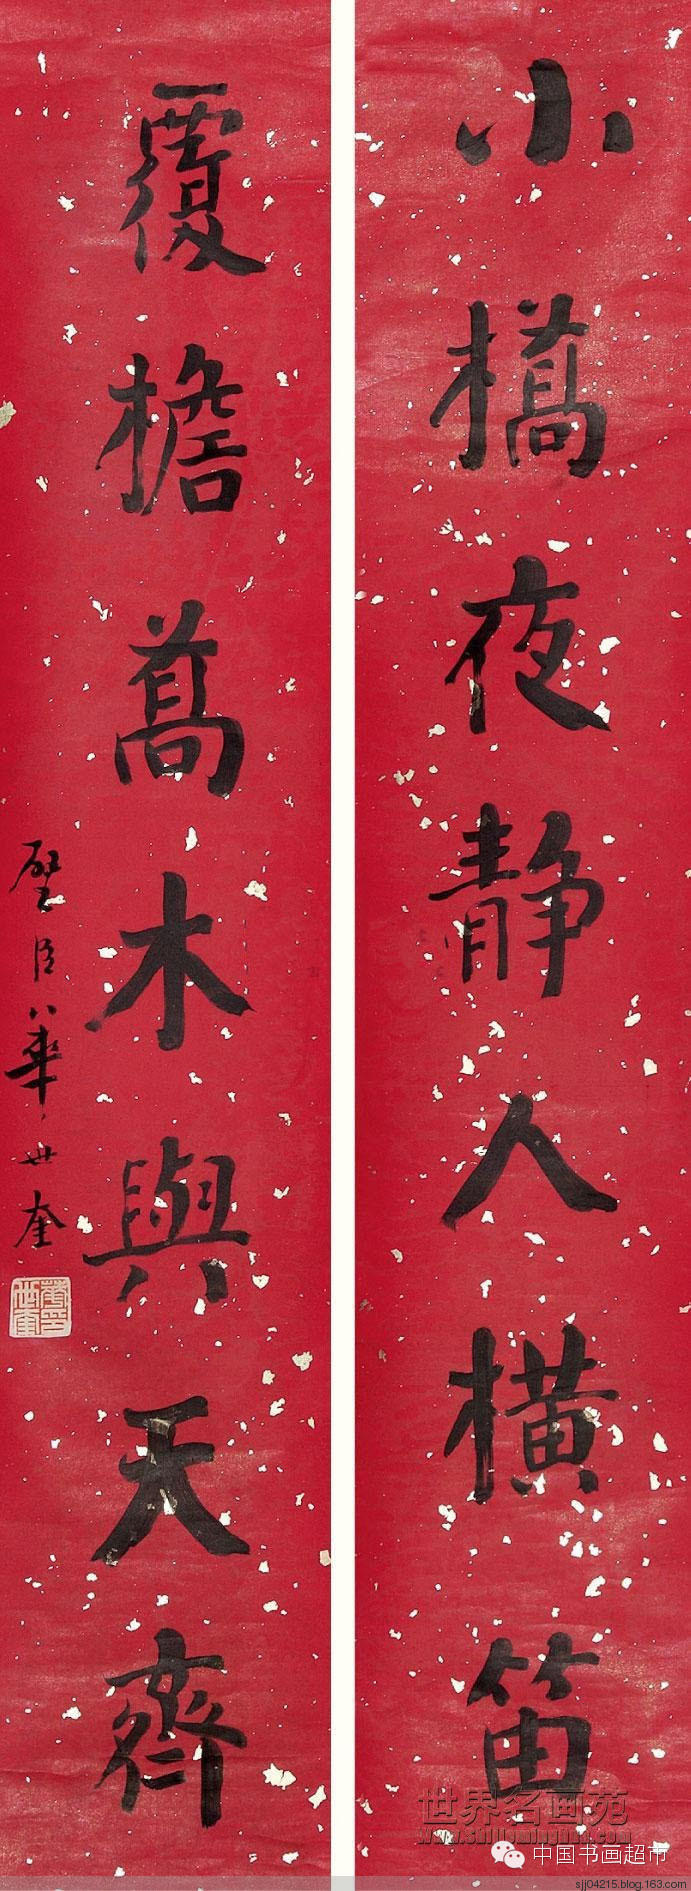 小橋夜静人橫笛
覆檐蒿木與天齊
璧臣華世奎
世界名画苑
中国书画超市
sjj04215.blog.163.com